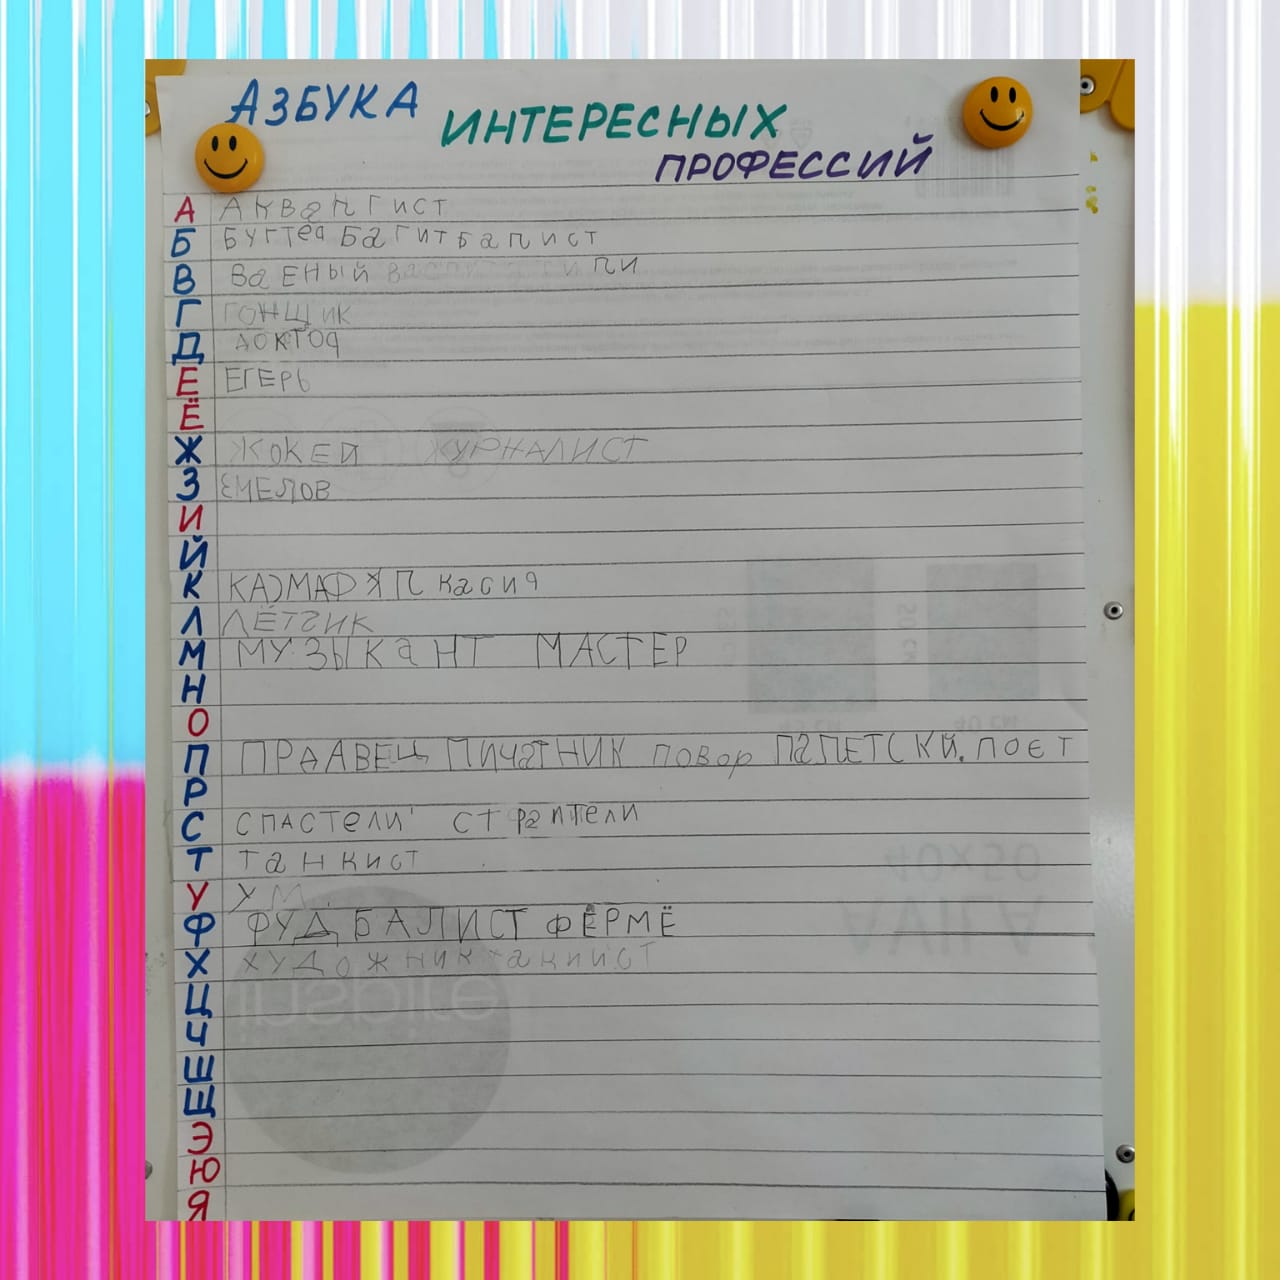 АЗБУКА
ИНТЕРЕСНЫХ
ПРОФЕССИЙ
А Аквангист
Б Бугтеа Багитбалист
В Ваеный
Г ГОНЩИК
Д ДОКТОР
Е ЕГЕРЬ
Ё
Ж ЖОКЕЙ ЖУРНАЛИСТ
З ЗМЕЛОВ
И
Й
К касия
Л ЛЁТЗИК
М МУЗЫКаНТ МАСТЕР
Н
О
П ПРДАВЕЦ ПИЧаТНИК повор ПаЛЕТСКИ. ПОЕТ
Р
С СПАСТЕЛИ СТРаИТЕЛИ
Т Танкист
У УМ.
Ф ФУДБАЛИСТ ФЁРМЁ
Х ХУДОЖНИК
Ц
Ч
Ш
Щ
Э
Ю
Я
40x50
AVILA